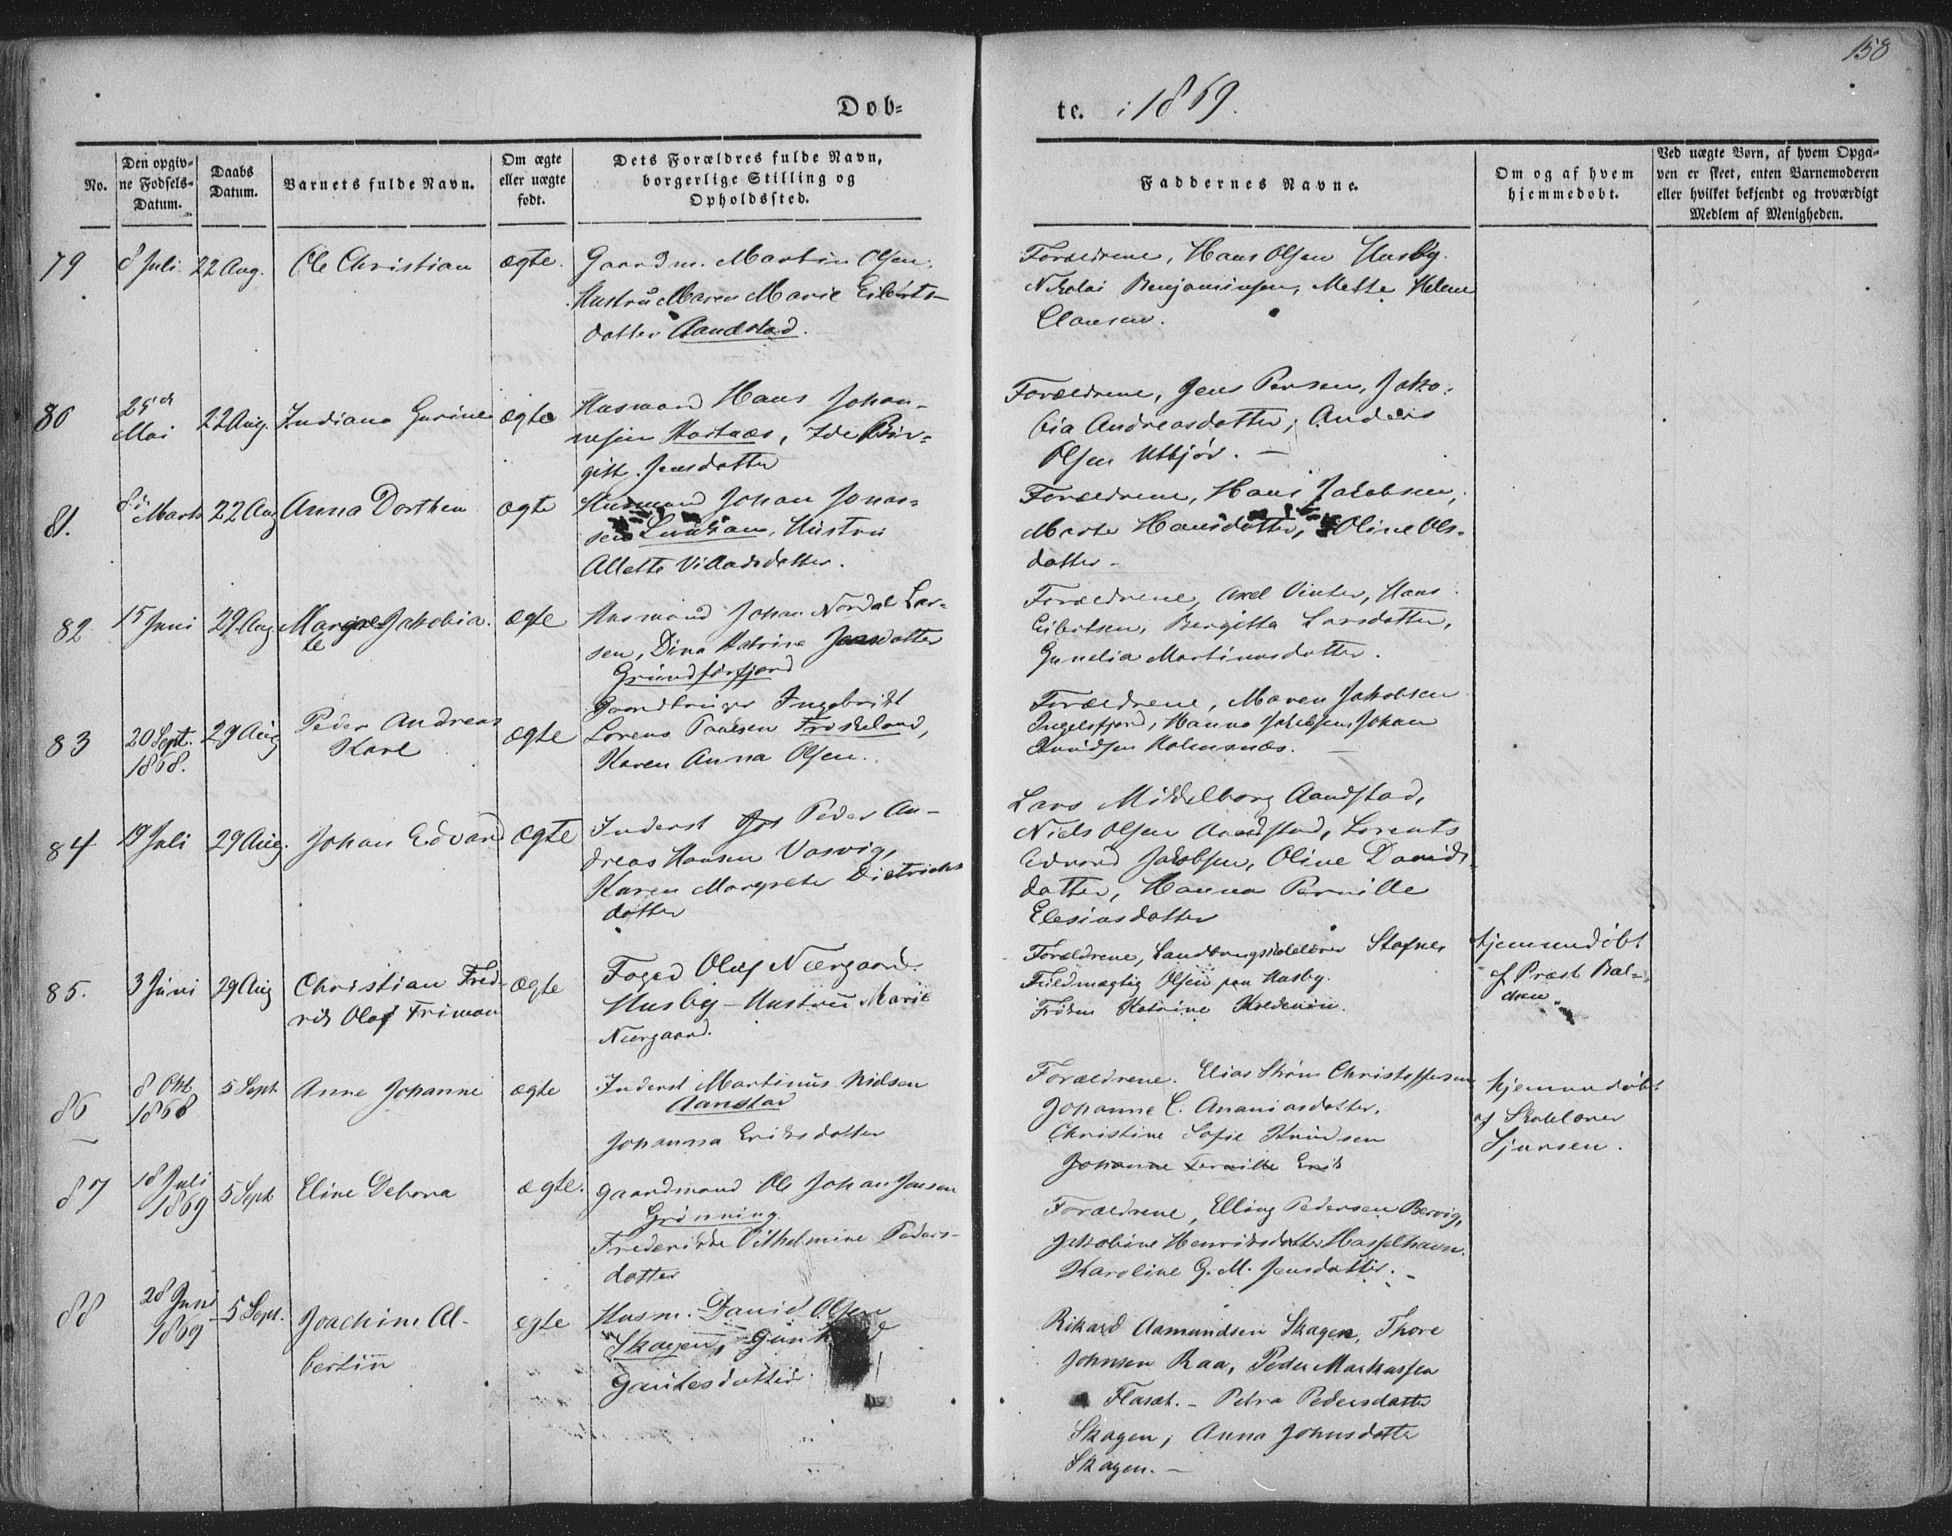 158
Døb-
te. i 1869.
No.
Den opgiv-
ne Fødsels-
Datum.
Daabs
Datum.
Barnets fulde Navn.
Om ægte
eller uægte
født.
Dets Forældres fulde Navn,
borgerlige Stilling og
Opholdssted.
Faddernes Navne.
Om og af hvem
hjemmedøbt.
Ved uægte Børn, af hvem Opga-
ven er skeet, enten Barnemoderen
eller hvilket bekjendt og troværdigt
Medlem af Menigheden.
79
8 Juli.
22 Aug.
Ole Christian
ægte.
Gaardm. Martin Olsen,
Hustru Maren Marie Eilerts-
datter Aandstad.
Forældrene, Hans Olsen Husby.
Nikolai Benjaminsen, Mette Helene
Clausen.
80
25de
Mai
22 Aug.
Indiana Gurine
ægte
Husmand Hans Johan-
nesen Hastnæs, Ide Bir-
gitte Jensdatter
Forældrene, Jens Persen, Jako-
bia Andreasdatter, Anders
Olsen Utbjør. -
81.
8de Marts
22 Aug
Anna Dorthea
ægte
Husmand Johan Jonas-
sen Hustru
Alette Villadsdatter.
Forældrene, Hans Jakobsen,
Marte Hansdatter, Oline Ols-
datter -
82
15 Juni
29 Aug
Margre- Jakobia.
te
ægte
Husmand Johan Nordal Lar-
sen, Dina Katrine Jensdatter
Grundførfjord
Forældrene, Axel Vinter, Hans
Eilertsen, Bergitta Larsdatter,
Gunelia Martinusdatter.
83
20 Sept.
1868.
29 Aug
Peder Andreas
Karl
ægte
Gaardbruger Ingebrikt
Lorens Paulsen Froskeland,
Karen Anna Olsen.
Forældrene, Maren Jakobsen
Ingelsfjord, Hanna Jakobsen, Johan
Knudsen Holmsnæs. -
84
19 Juli
29 Aug.
Johan Edvard
ægte
Inderst Peder An-
dreas Hansen Vasvig,
Karen Margrete Dietrichs
datter
Lars Middelborg Aandstad,
Niels Olsen Aandstad, Lorents
Edvard Jakobsen, Oline Davids-
datter, Hanna Pernille
Elesiasdatter
85.
3 Juni
29 Aug
Christian Fred-
rik Olaf Friman
ægte
Foged Oluf Neergaard.
Husby - Hustru Marie
Neergaard.
Forældrene, Landbrugsskolelærer Stafnes
Fuldmægtig Olsen paa Husby.
Frøken Katrine Koldevin.
hjemmedøbt
af Præst Bal-
chen.
86
8 Okt
1868
5 Sept
Anne Johanne
ægte
Inderst Martinus Nielsen
Aanstad
Johanna Eriksdatter
Forældrene. Elias Strøm Christoffersen
Johanne C. Ananiasdatter.
Christine Sofie Knudsen
Johanne Pernille Erik
hjemmedøbt
af Skolelærer
Sjursen.
87
18 Juli
1869
5 Sept
Eline Debora
ægte.
Gaardmand Ole Johan Jensen
Grønning
Frederikke Vilhelmine Peders-
datter
Forældrene, Elling Pedersen Bervig,
Jakobine Henriksdatter Hasselhavn.
Karoline G. M. Jensdatter. -
88
28 Juni
1869
5 Sept.
Joachim Al-
bertin
ægte
Husm. David Olsen
Skagen,
Gautesdatter
Rikard Aamundsen Skagen, Thore
Johnsen Raa, Peder Markussen
Flasat. - Petra Pedersdatter
Skagen, Anna Johnsdatter
Skagen. -